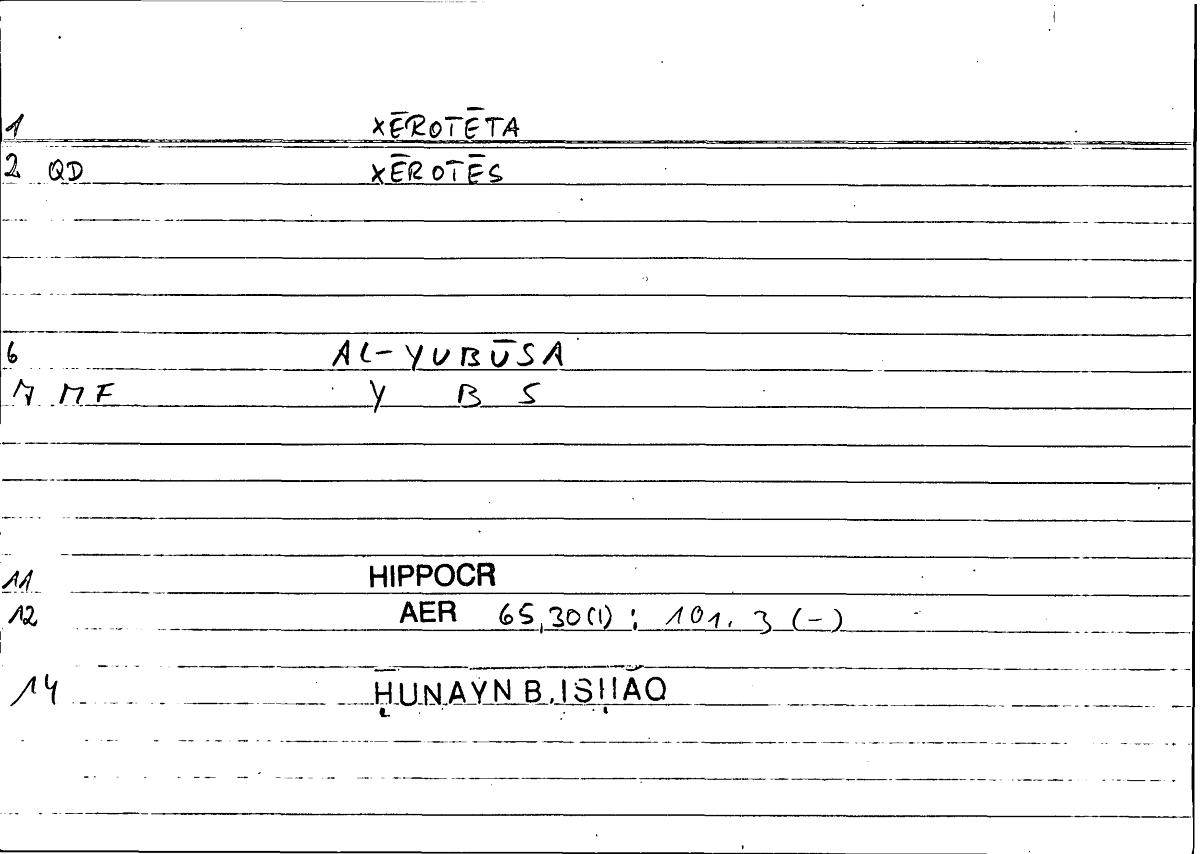 1 XĒROTĒTA
2 QD XĒROTĒS
6 AL-YUBŪSA
7 MF Y B S
11 HIPPOCR
12 AER 65,30(1) : 101. 3 (-)
14 ḤUNAYN B. ISḤĀQ